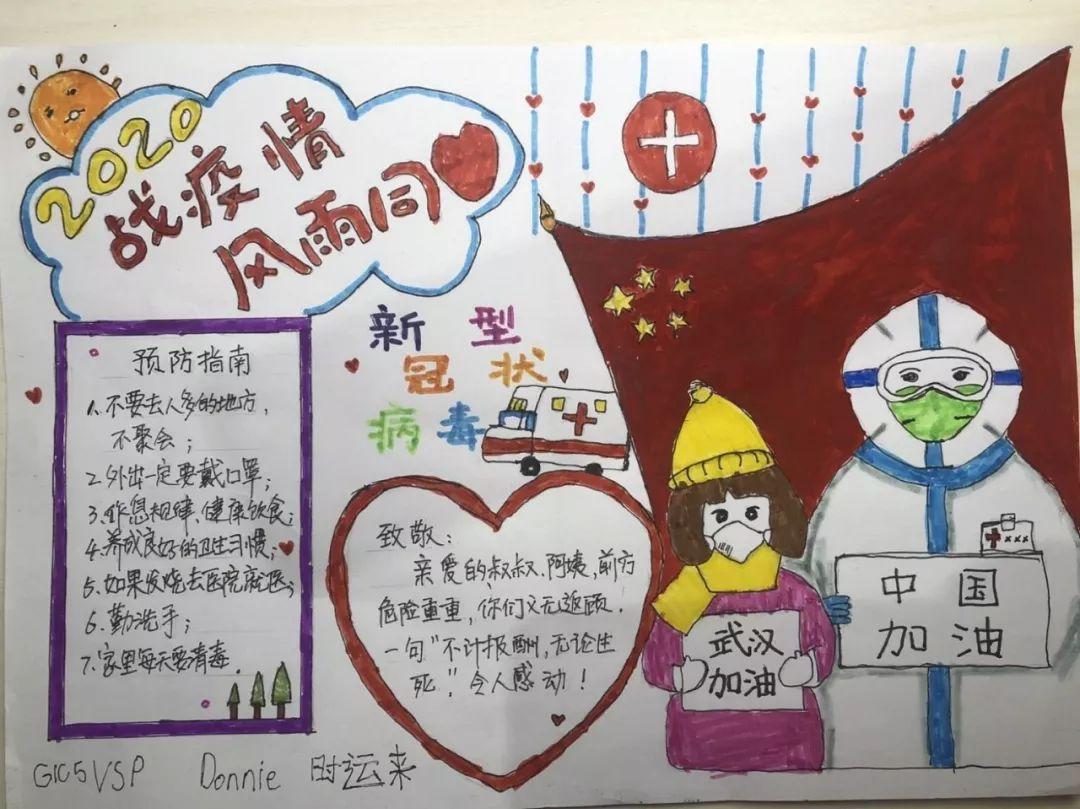 2020
战疫情
风雨同
新型
冠状
病毒
预防指南
1.不要去人多的地方,
不聚会;
2.外出一定要戴口罩;
3.作息规律、健康饮食;
4.养成良好的卫生习惯;
5.如果发烧去医院就医;
6.勤洗手;
7.家里每天要消毒.
致敬:
亲爱的叔叔、阿姨,前方
危险重重,你们义无返顾.
一句“不计报酬,无论生
死”,令人感动!
武汉
加油
xxx
中国
加油
G1C5VSP Donnie 时运来